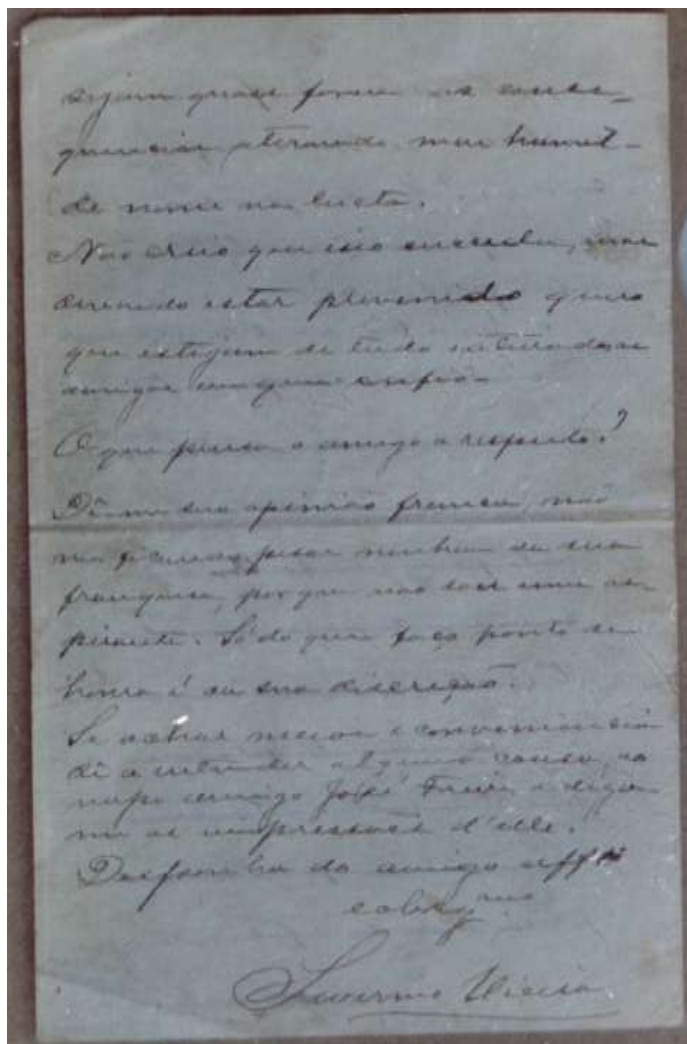 sejam quaes forem as conse-
quencias atirando meu humil-
de nome na lucta.
Não creio que isso succeda, mas
querendo estar prevenido quero
que estejam de tudo inteirados os
amigos em quem confio.
O que pensa o amigo a respeito?
Dê-me sua opinião franca, não
me ficando pesar nenhum da sua
franqueza, por que não sou um as-
pirante. Só do que faço ponto de
honra é da sua discreção.
Se achar nisso conveniencia
dê a entender alguma cousa, ao
nosso amigo José Freire e diga-
me as impressões d'elle.
Disponha do amigo aff.º
e obrg.mo
Vieira